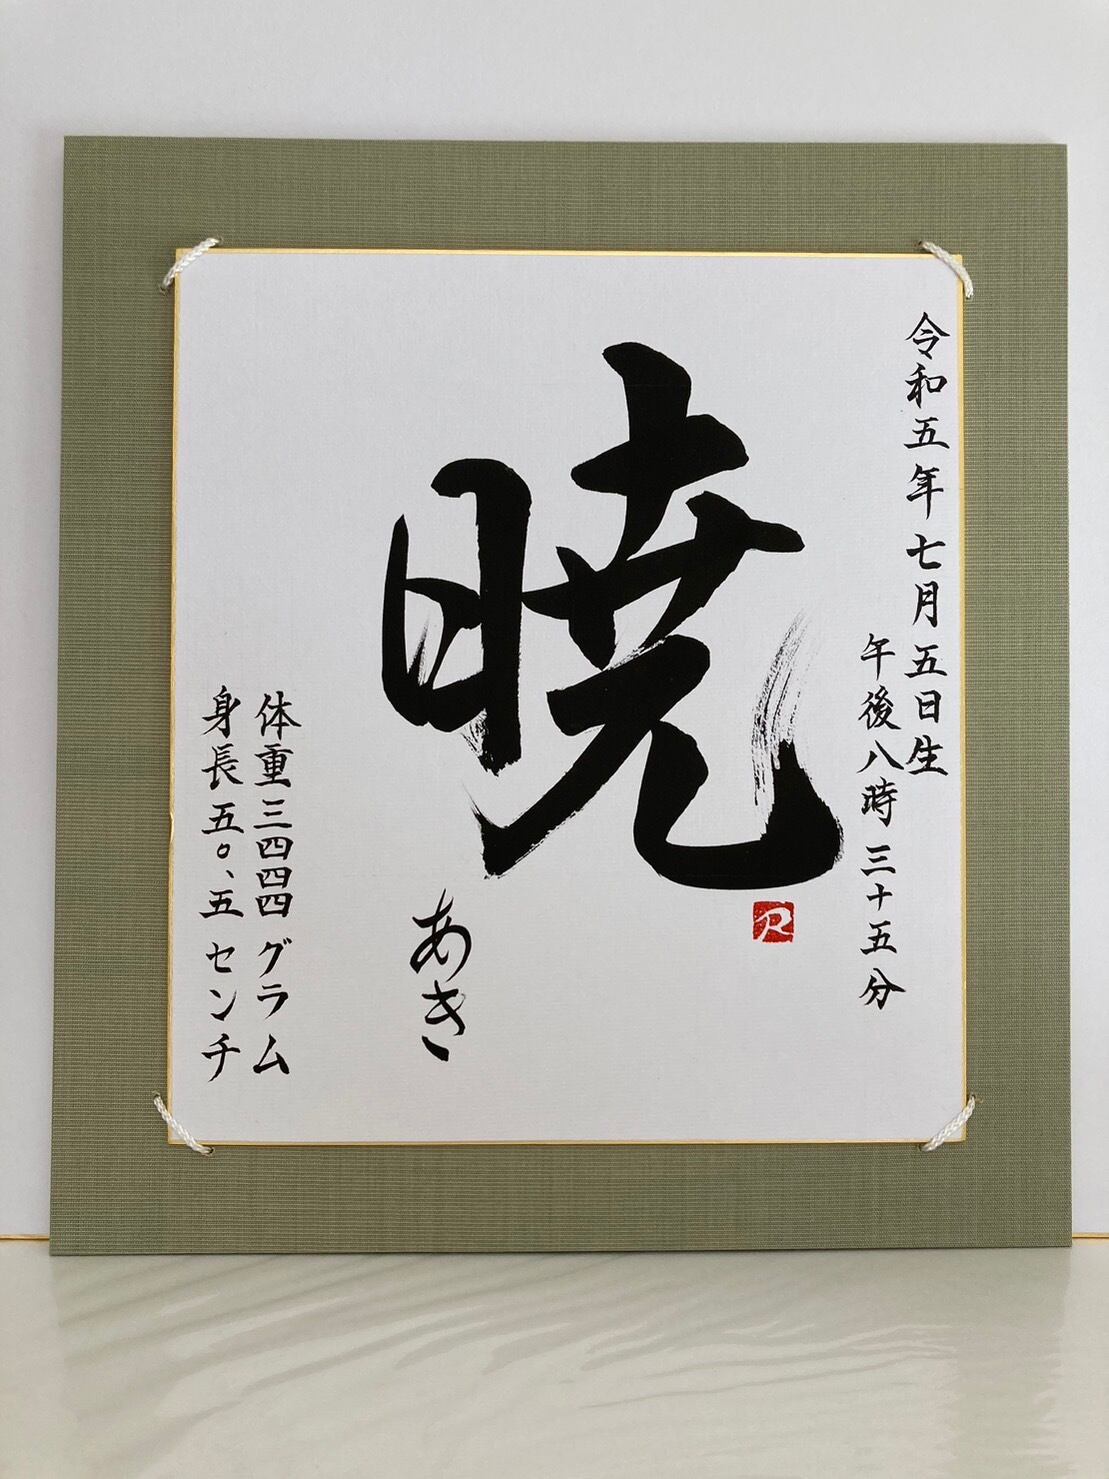 令和五年七月五日生
午後八時三十五分
暁
R
あき
体重三四四四グラム
身長五〇、五センチ